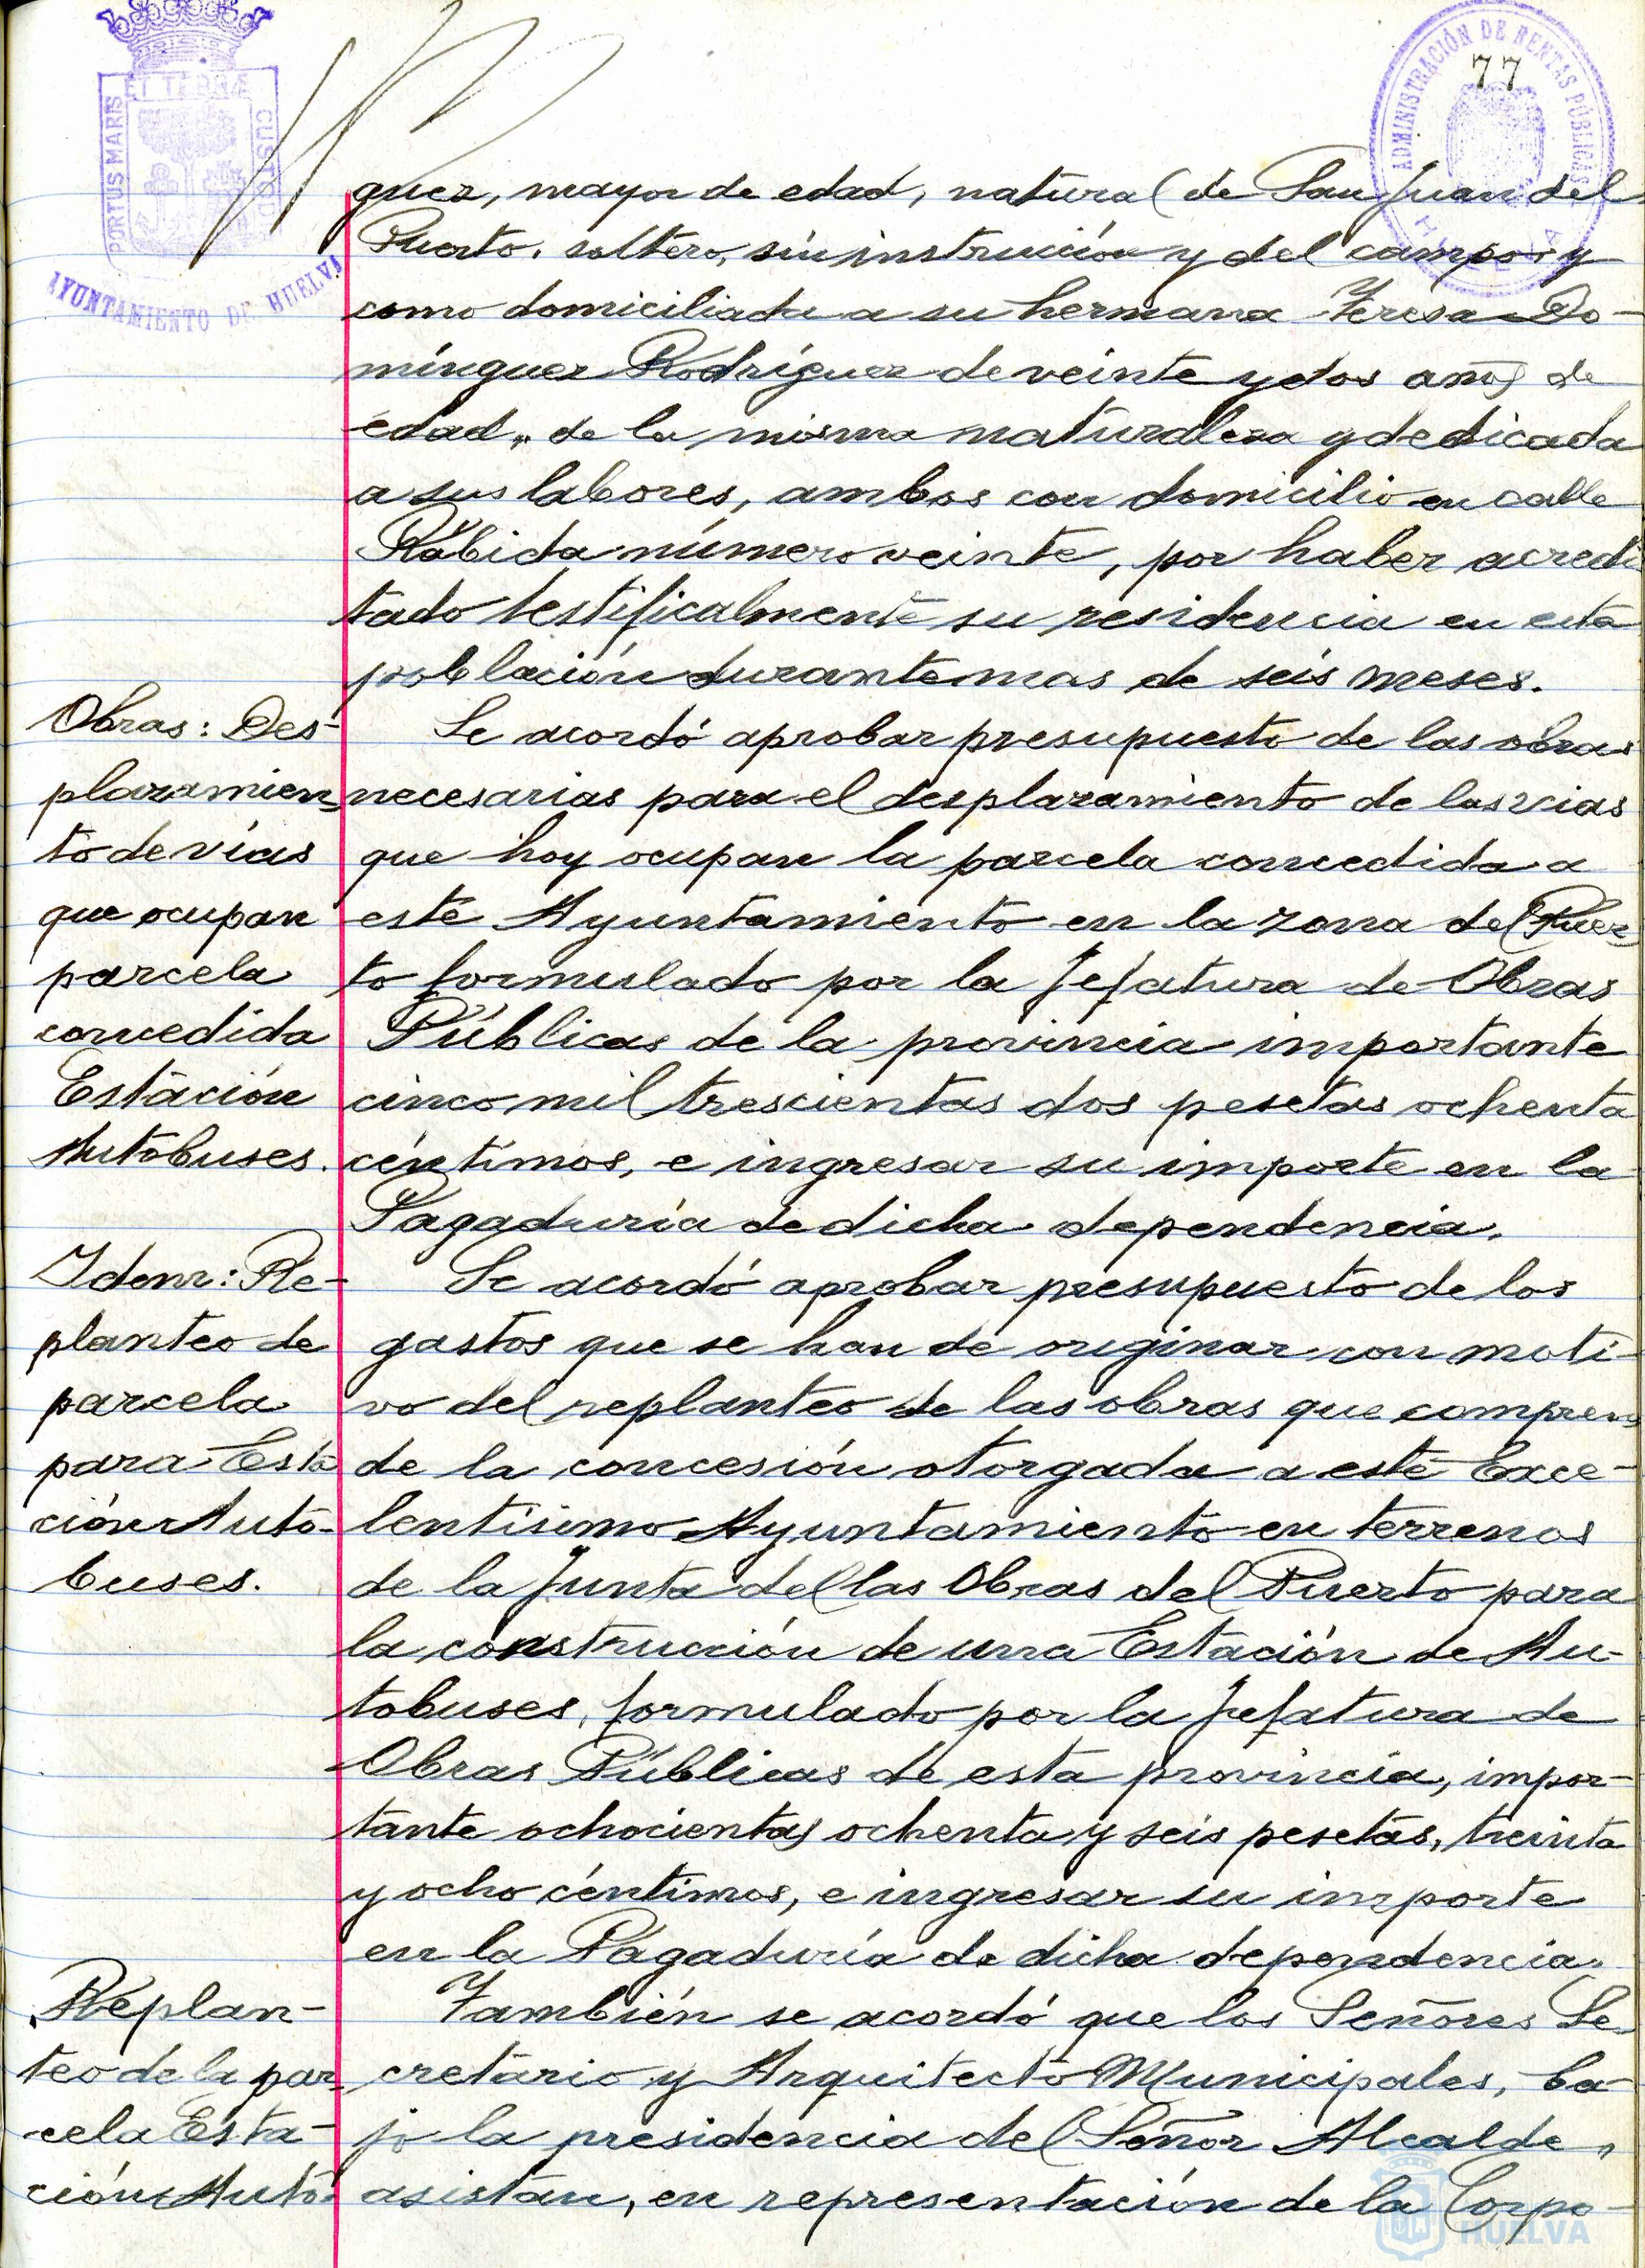 77
PORTUS MARIS
ET TERRÆ
CUSTODIA
AYUNTAMIENTO DE HUELVA
ADMINISTRACIÓN DE RENTAS PÚBLICAS
HUELVA
guez, mayor de edad, natural de San Juan del
Puerto, soltero, sin instrución y del campo y
como domiciliada a su hermana Teresa Do-
mínguez Rodríguez de veinte y dos años de
edad, de la misma naturaleza y dedicada
a sus labores, ambos con domicilio en calle
Rábida número veinte, por haber acredi
tado testificalmente su residencia en esta
población durante mas de seis meses.
Obras: Des-
plazamien-
to de vías
que ocupan
parcela
concedida
Estación
Autobuses.
Se acordó aprobar presupuesto de las obras
necesarias para el desplazamiento de las vias
que hoy ocupan la parcela concedida a
este Ayuntamiento en la zona del Puer
to formulado por la Jefatura de Obras
Públicas de la provincia importante
cinco mil trescientas dos pesetas ochenta
céntimos, e ingresar su importe en la
Pagaduría de dicha dependencia.
Idem: Re-
planteo de
parcela
para Esta
ción Auto-
buses.
Se acordó aprobar presupuesto de los
gastos que se han de originar con moti-
vo del replanteo de las obras que compren
de la concesión otorgada a este Exce-
lentísimo Ayuntamiento en terrenos
de la Junta del las Obras del Puerto para
la construcción de una Estación de Au-
tobuses, formulado por la Jefatura de
Obras Públicas de esta provincia, impor-
tante ochocientas ochenta y seis pesetas, treinta
y ocho céntimos, e ingresar su importe
en la Pagaduría de dicha dependencia.
Replan-
teo de la par-
cela Esta-
ción Auto-
También se acordó que los Señores Se
cretario y Arquitecto Municipales, ba-
jo la presidencia del Señor Alcalde,
asistan, en representación de la Corpo-
HUELVA